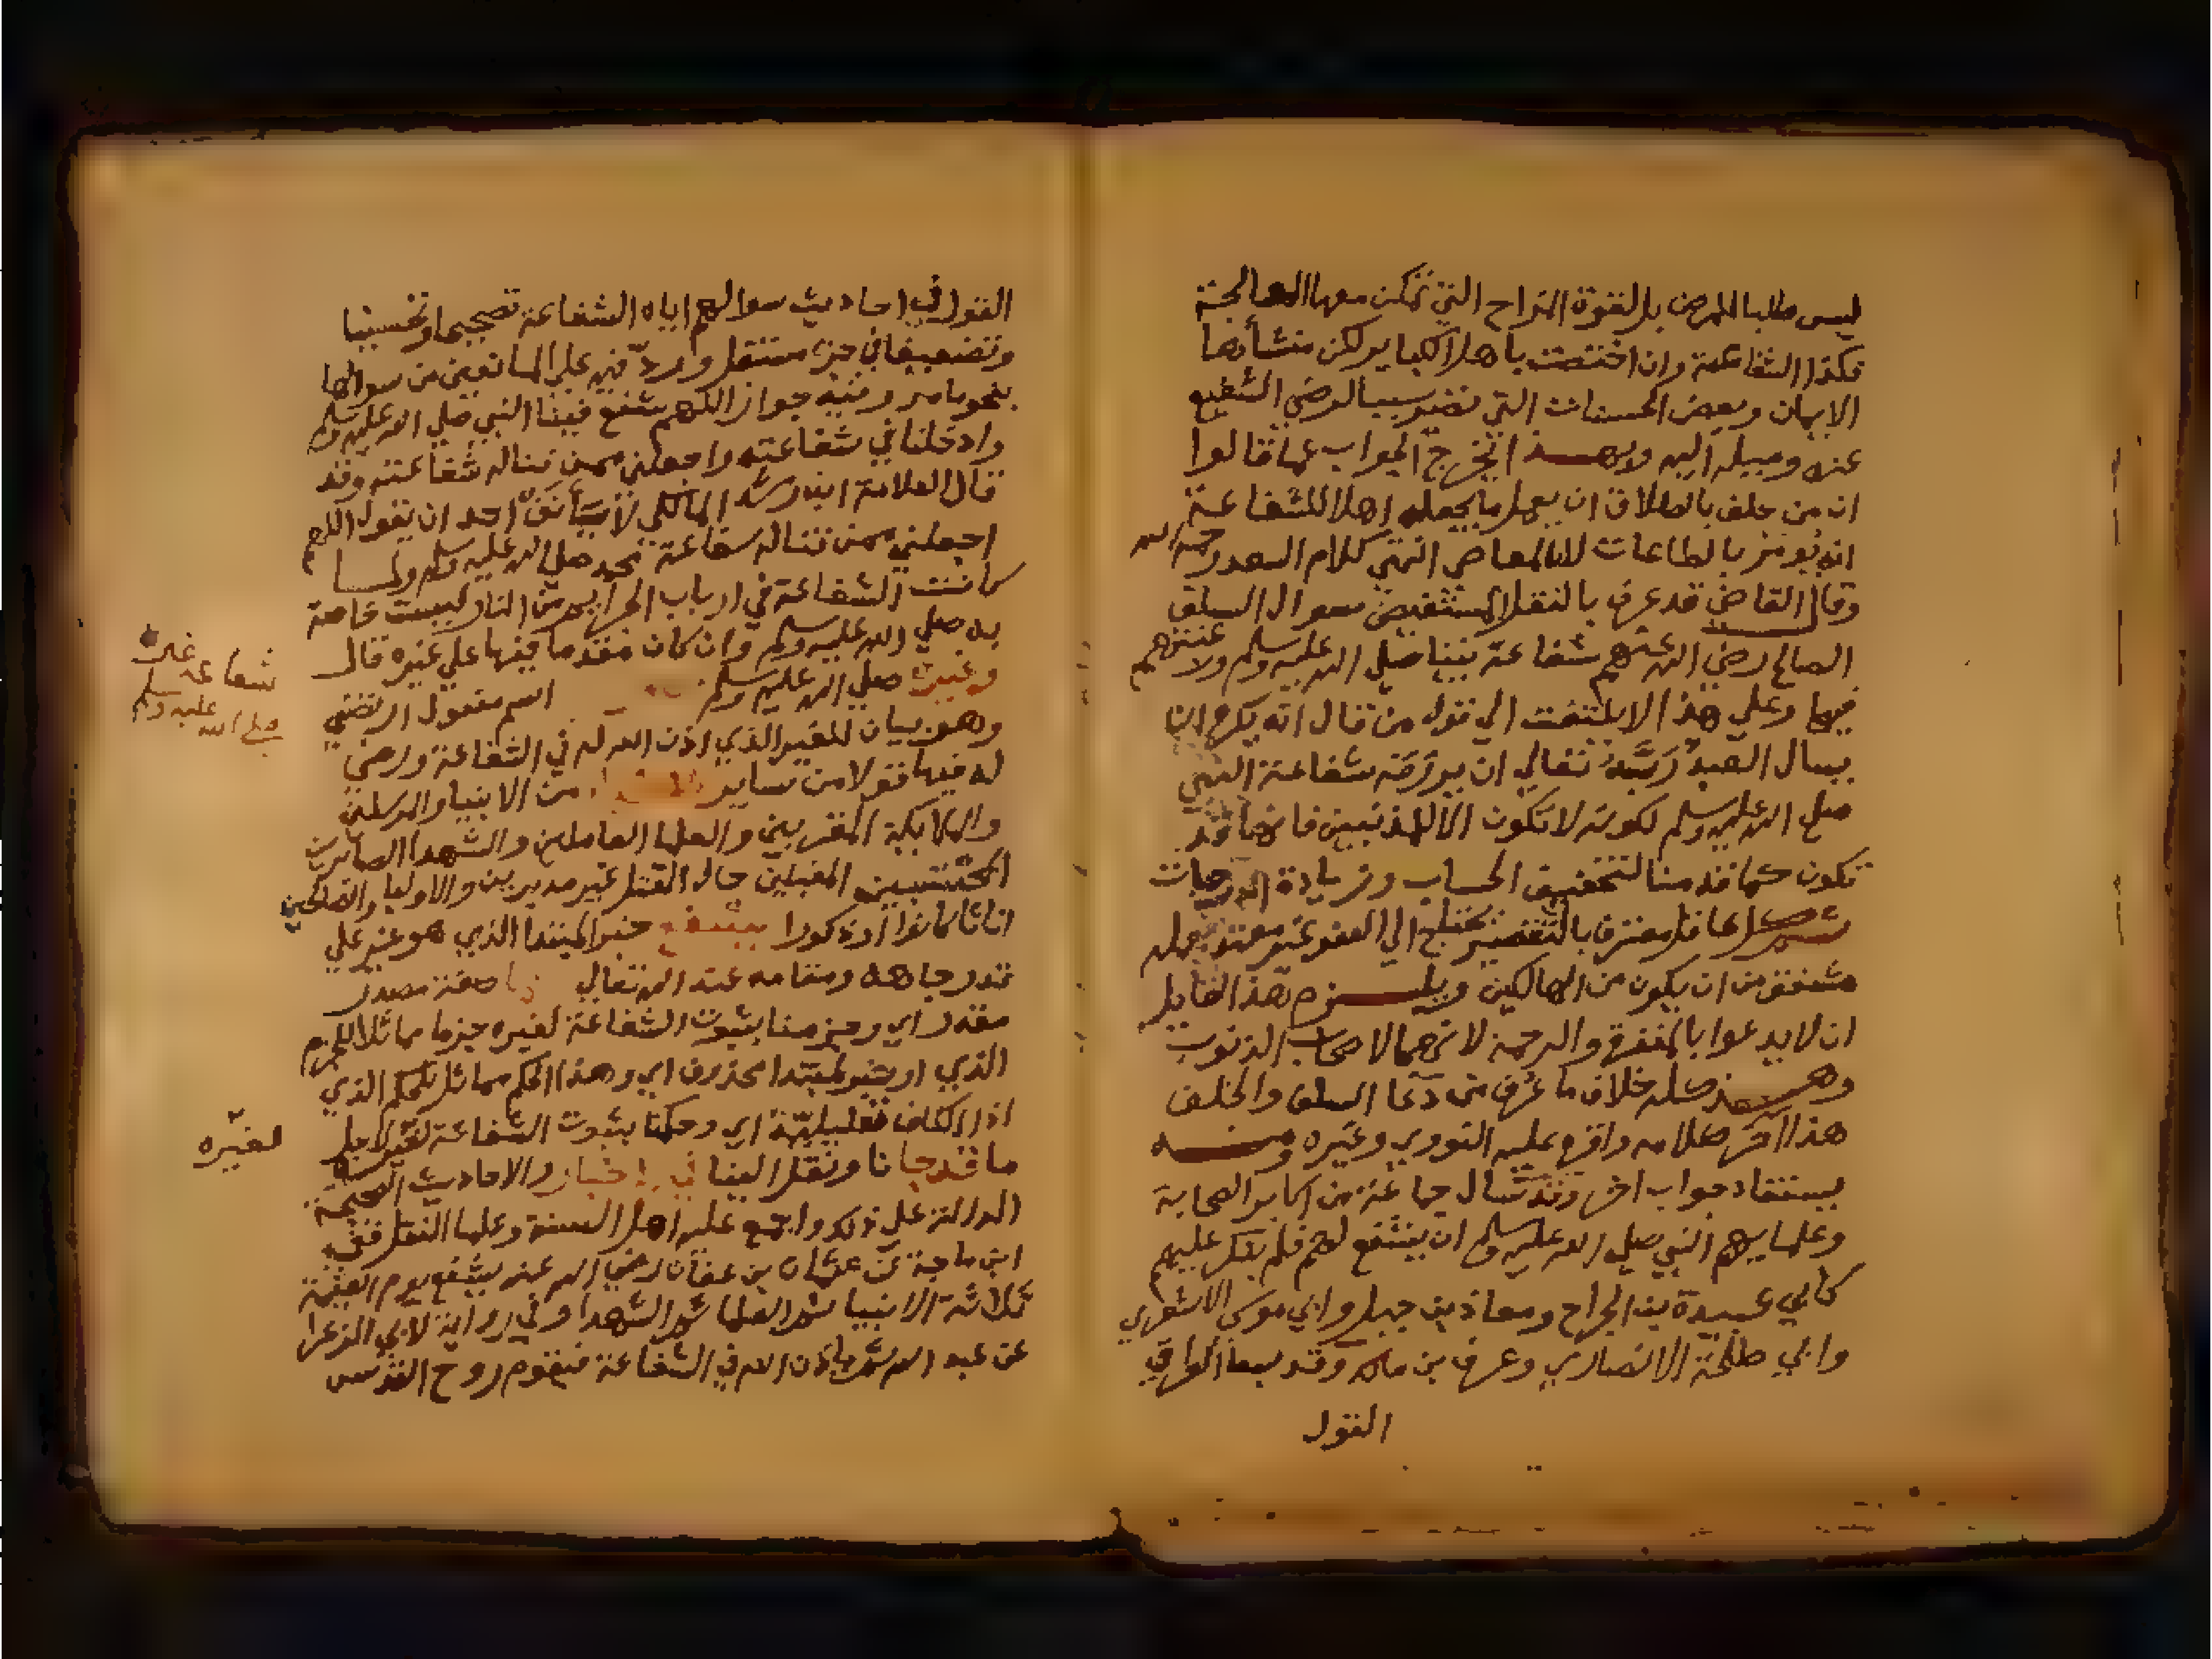 ليس طلبا للمرض بل لقوة المزاج التي تمكن معها المعالجة
فكذا الشفاعة وان اختصت باهل الكباير لكن منشأها
الايمان وبعض الحسنات التي تصير سببا لرضى الشفيع
عنه وميله اليه وبهذا تخرج الجواب عما قالوا
ان من حلف بالطلاق ان يعمل ما يجعله اهلا للشفاعة
انه يومر بالطاعات لا بالمعاصي انتهى كلام السعد رحمه الله
وقال القاضي قد عرف بالنقل المستفيض سوال السلف
الصالح رضي الله عنهم شفاعة نبينا صلى الله عليه وسلم ورغبتهم
فيها وعلى هذا لا يلتفت الى قول من قال انه يكره ان
يسال العبد ربه تعالى ان يرزقه شفاعة النبي
صلى الله عليه وسلم لكونه لا تكون الا للمذنبين فانها قد
تكون كما قدمنا لتخفيف الحساب وزيادة الدرجات
ثم كل عاقل معترف بالتقصير محتاج الى العفو غير معتد بعمله
مشفق من ان يكون من الهالكين ويلزم هذا القايل
ان لا يدعوا بالمغفرة والرحمة لانهما لاصحاب الذنوب
وهذا كله خلاف ما عرف من دعا السلف والخلف
هذا اخر كلامه واقره عليه النووي وغيره ومنه
يستفاد جواب اخر وقد سال جماعة من اكابر الصحابة
وعلمايهم النبي صلى الله عليه وسلم ان يشفع لهم فلم ينكر عليهم
كابي عبيدة بن الجراح ومعاذ بن جبل وابي موسى الاشعري
وابي طلحة الانصاري وعوف بن مالك وقد بسط العراقي
القول
القول في احاديث سوالهم اياه الشفاعة تصحيحا وتحسينا
وتضعيفا في جزء مستقل ورد فيه على المانعين من سوالها
بنحو ما مر وفيه جواز اللهم شفع فينا النبي صلى الله عليه وسلم
وادخلنا في شفاعته واجعلني ممن تناله شفاعته وقد
قال العلامة ابن رشد المالكي لا يستأنف احد ان يقول اللهم
اجعلني ممن تناله شفاعة محمد صلى الله عليه وسلم ولما
كانت الشفاعة في ارباب الجرايم من النار ليست خاصة
به صلى الله عليه وسلم وان كان مقدما فيها على غيره قال
وغيره صلى الله عليه وسلم اسم مفعول ارتضي
وهو بيان للغير الذي اذن الله له في الشفاعة ورضي
له فيها قولا من ساير من الانبيا والمرسلين
والملايكة المقربين والعلما العاملين والشهدا الصابرين
المحتسبين المقبلين حال القتل غير مدبرين والاوليا والصالحين
اناثا كانوا او ذكورا يشفع خبر المبتدا الذي هو غير على
قدر جاهه ومقامه عند الله تعالى صفة مصدر
مقدر اي وجزمنا بثبوت الشفاعة لغيره جزما مماثلا للجزم
الذي او خبر لمبتدا محذوف اي وهذا الحكم مماثل للحكم الذي
اذا الكاف تعليلية اي وحكمنا بثبوت الشفاعة لغيره لاجل
ما قد جانا ونقل الينا في الاخبار والاحاديث الصحيحة
الدالة على ذلك واجمع عليه اهل السنة وعلما النقل ففي
ابن ماجة عن عثمان بن عفان رضي الله عنه يشفع يوم القيمة
ثلاثة الانبيا ثم العلما ثم الشهدا وفي رواية لابي الزعرا
عن عبد الله ثم ياذن الله في الشفاعة فيقوم روح القدس
شفاعة غيره
صلى الله عليه وسلم
لغيره